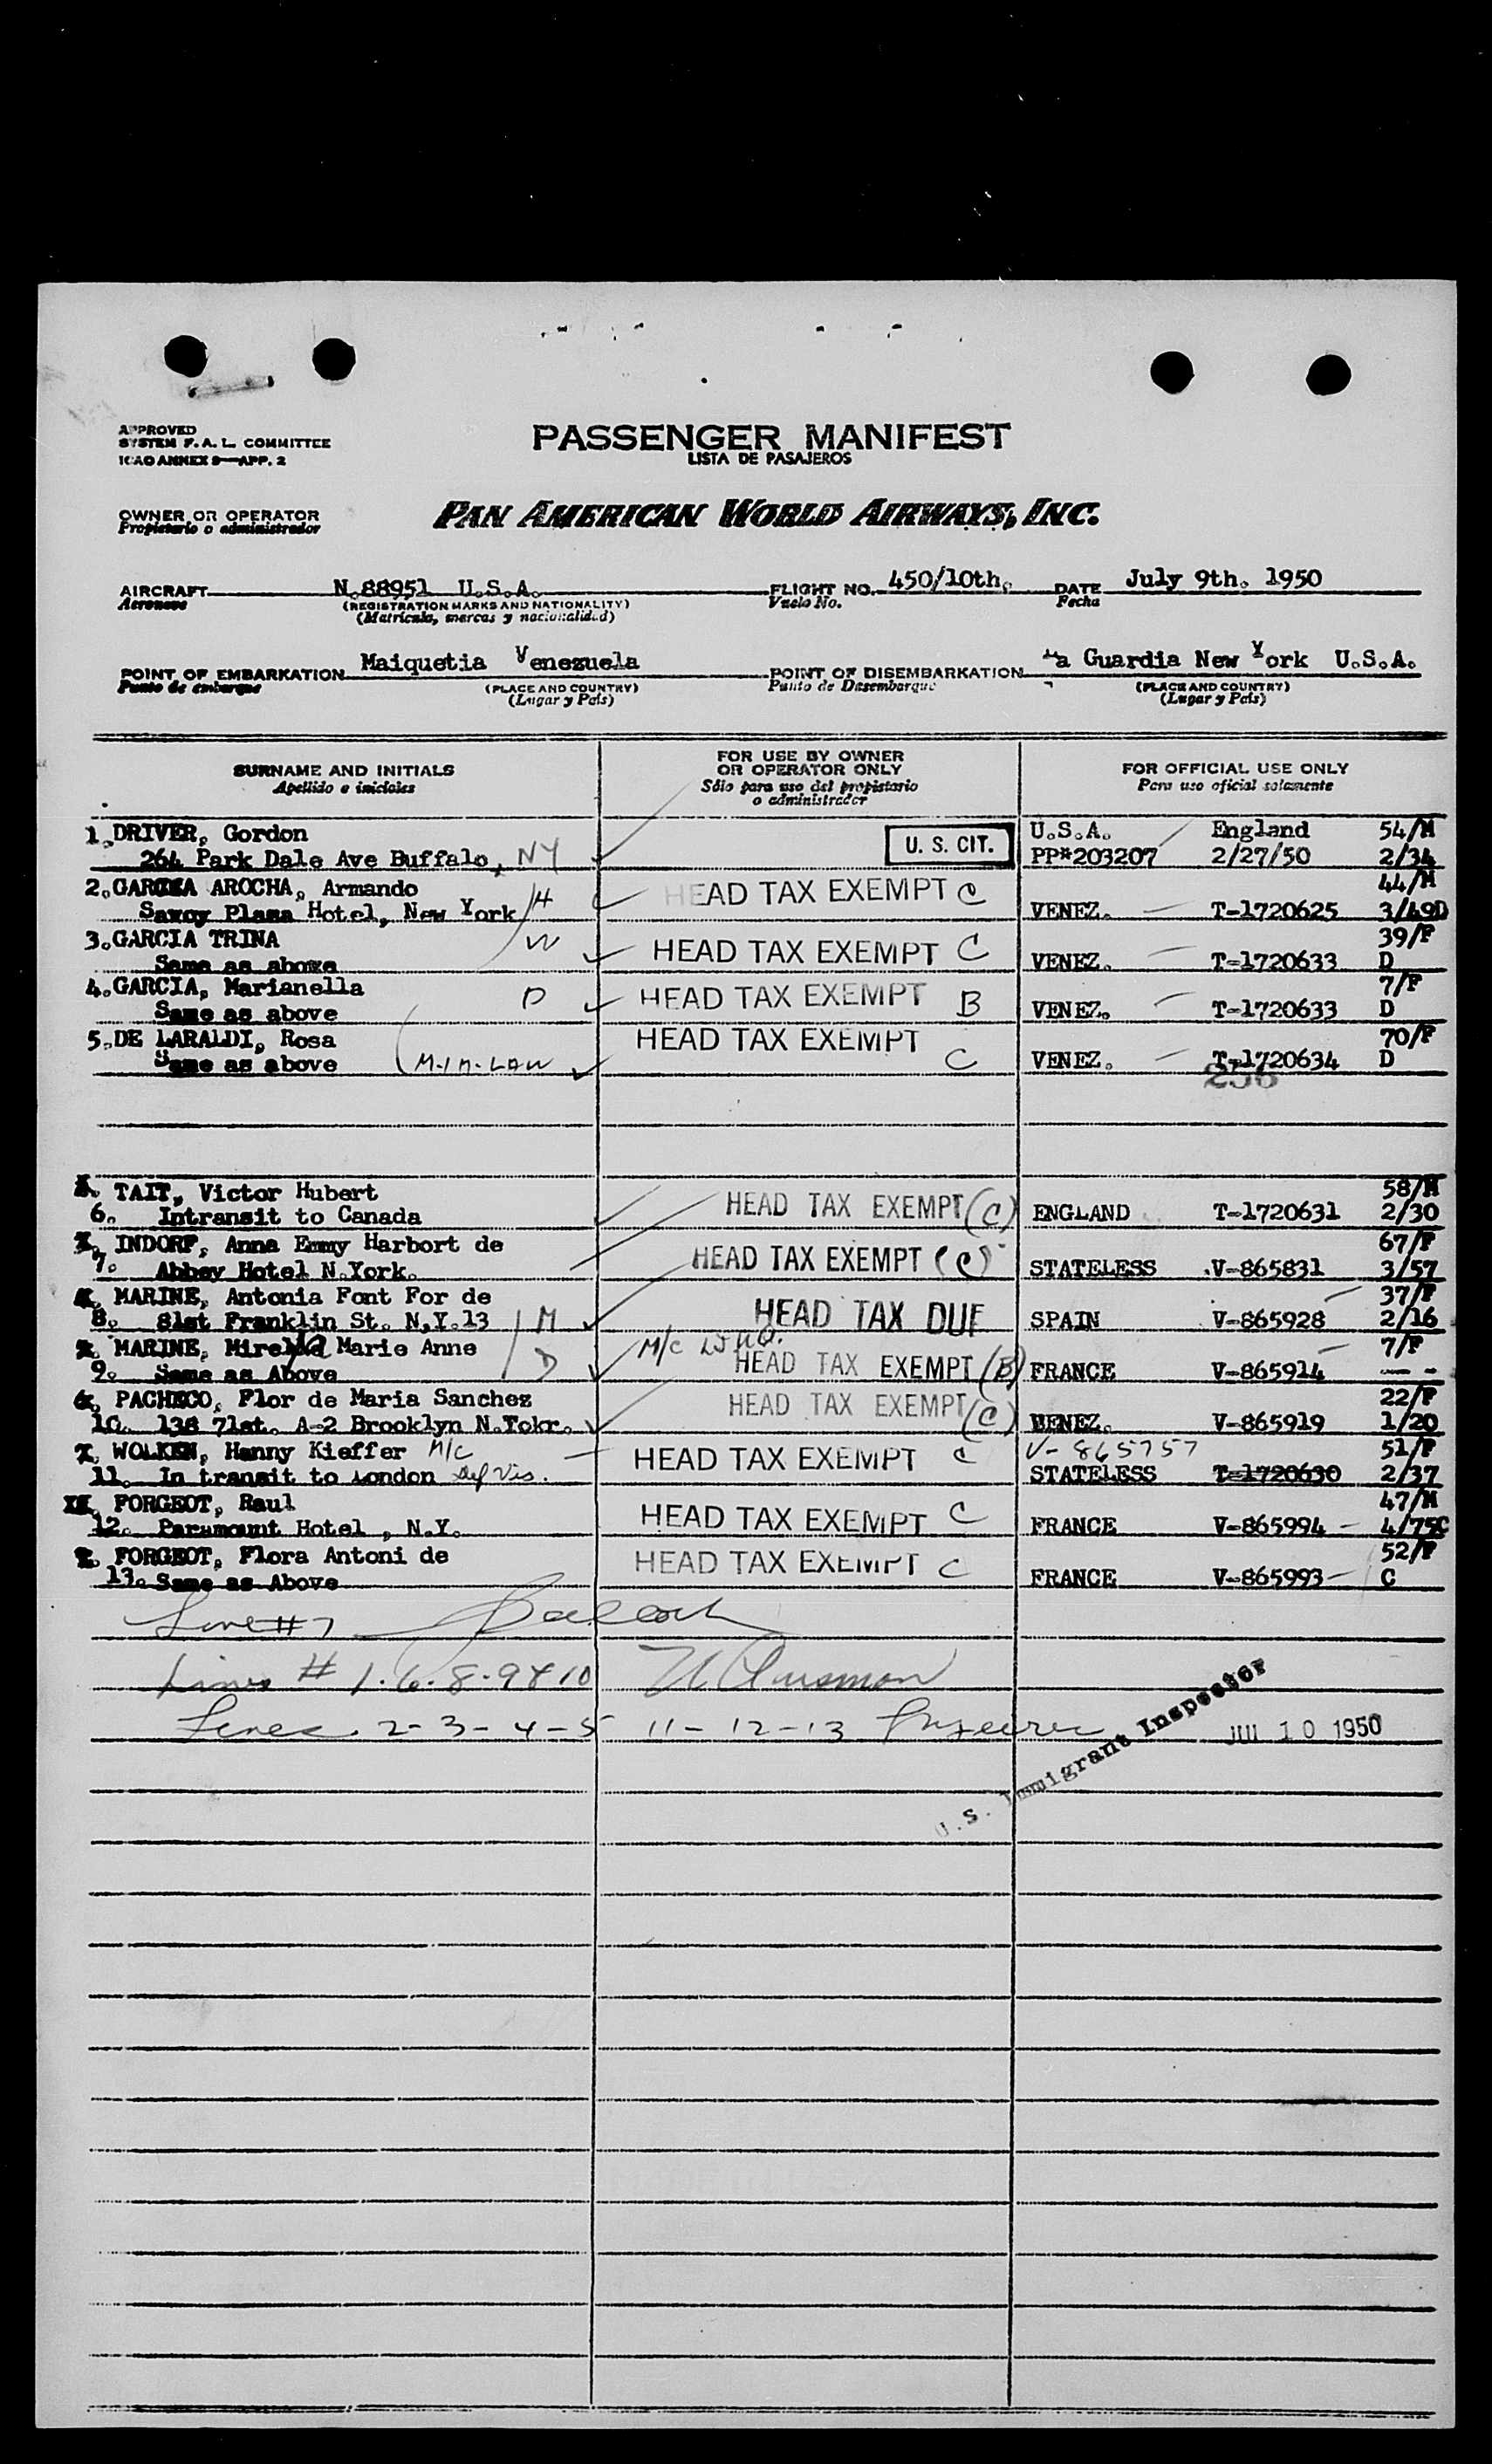 APPROVED
SYSTEM F. A. L. COMMITTEE
ICAO ANNEX 9—APP. 2
PASSENGER MANIFEST
LISTA DE PASAJEROS
OWNER OR OPERATOR
Propietario o administrador
PAN AMERICAN WORLD AIRWAYS, INC.
AIRCRAFT N.88951 U.S.A. FLIGHT NO. 450/10th. DATE July 9th. 1950
Aeronave (REGISTRATION MARKS AND NATIONALITY) Vuelo No. Fecha
(Matrícula, marcas y nacionalidad)
POINT OF EMBARKATION Maiquetia Venezuela POINT OF DISEMBARKATION La Guardia New York U.S.A.
Punto de embarque (PLACE AND COUNTRY) Punto de Desembarque (PLACE AND COUNTRY)
(Lugar y País) (Lugar y País)
SURNAME AND INITIALS
Apellido e iniciales
FOR USE BY OWNER
OR OPERATOR ONLY
Sólo para uso del propietario
o administrador
FOR OFFICIAL USE ONLY
Para uso oficial solamente
1. DRIVER, Gordon U.S.A. England 54/M
264 Park Dale Ave Buffalo, NY U. S. CIT. PP#203207 2/27/50 2/34
2. GARCIA AROCHA, Armando HEAD TAX EXEMPT C 44/M
Savoy Plaza Hotel, New York H VENEZ. T-1720625 3/49D
3. GARCIA TRINA W HEAD TAX EXEMPT C 39/F
Same as above VENEZ. T-1720633 D
4. GARCIA, Marianella D HEAD TAX EXEMPT B 7/F
Same as above VENEZ. T-1720633 D
5. DE LARALDI, Rosa HEAD TAX EXEMPT 70/F
Same as above M-in-LAW C VENEZ. T-1720634 D
256
TAIT, Victor Hubert HEAD TAX EXEMPT (C) 58/M
6. Intransit to Canada ENGLAND T-1720631 2/30
INDORF, Anna Emmy Harbort de HEAD TAX EXEMPT (C) 67/F
7. Abbey Hotel N.York. STATELESS V-865831 3/57
MARINE, Antonia Font For de HEAD TAX DUE 37/F
8. 81st Franklin St. N,Y.13 M SPAIN V-865928 2/16
MARINE, Mirella Marie Anne M/C 7/F
9. Same as Above D HEAD TAX EXEMPT (B) FRANCE V-865914 — -
PACHECO, Flor de Maria Sanchez HEAD TAX EXEMPT (C) 22/F
10. 138 71st. A-2 Brooklyn N.Yokr. VENEZ. V-865919 1/20
WOLKEN, Hanny Kieffer N/C HEAD TAX EXEMPT C V-865757 51/F
11. In transit to London STATELESS T-1720630 2/37
FORGEOT, Raul HEAD TAX EXEMPT C 47/M
12. Paramount Hotel , N.Y. FRANCE V-865994 4/75C
FORGEOT, Flora Antoni de HEAD TAX EXEMPT C 52/F
13. Same as Above FRANCE V-865993 C
Line #7
Lines # 1.6.8.9&10
Lines 2-3-4-5 11-12-13
U.S. Immigrant Inspector
JUL 10 1950